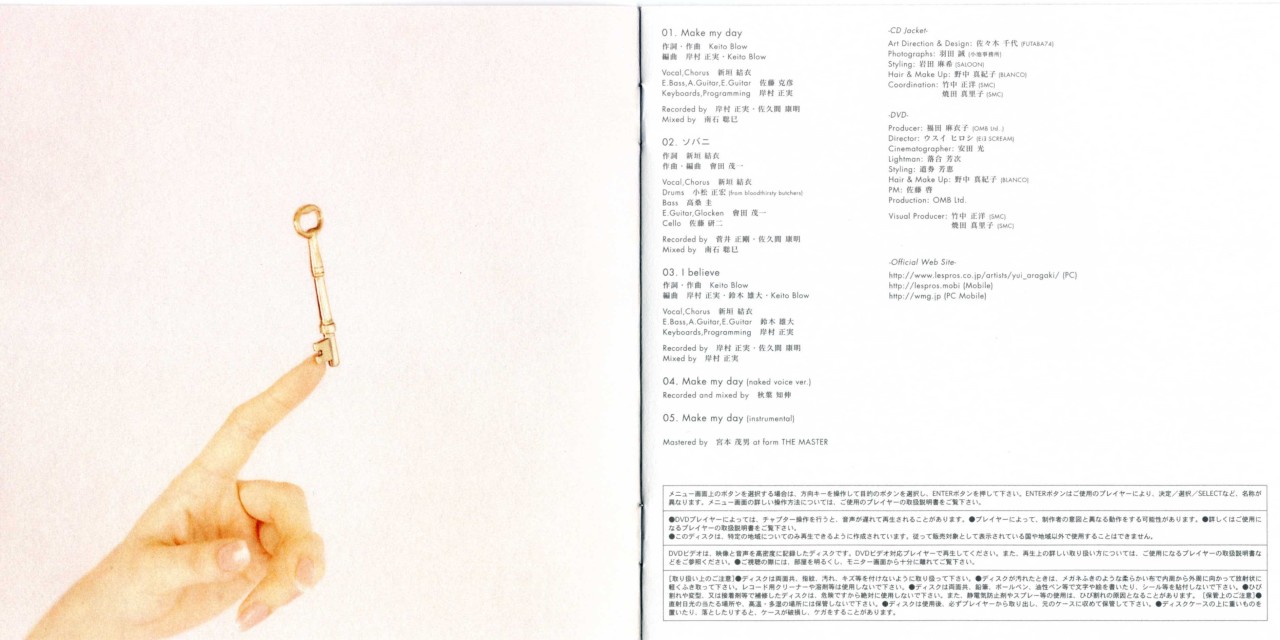 01. Make my day
作詞・作曲　Keito Blow
編曲　岸村 正実・Keito Blow
Vocal,Chorus　新垣 結衣
E.Bass,A.Guitar,E.Guitar　佐藤 克彦
Keyboards,Programming　岸村 正実
Recorded by　岸村 正実・佐久間 康明
Mixed by　南石 聡巳
02. ソバニ
作詞　新垣 結衣
作曲・編曲　會田 茂一
Vocal,Chorus　新垣 結衣
Drums　小松 正宏 (from bloodthirsty butchers)
Bass　高桑 圭
E.Guitar,Glocken　會田 茂一
Cello　佐藤 研二
Recorded by　菅井 正剛・佐久間 康明
Mixed by　南石 聡巳
03. I believe
作詞・作曲　Keito Blow
編曲　岸村 正実・鈴木 雄大・Keito Blow
Vocal,Chorus　新垣 結衣
E.Bass,A.Guitar,E.Guitar　鈴木 雄大
Keyboards,Programming　岸村 正実
Recorded by　岸村 正実・佐久間 康明
Mixed by　岸村 正実
04. Make my day (naked voice ver.)
Recorded and mixed by　秋葉 知伸
05. Make my day (instrumental)
Mastered by　宮本 茂男 at form THE MASTER
-CD Jacket-
Art Direction & Design: 佐々木 千代 (FUTABA74)
Photographs: 羽田 誠
Styling: 岩田 麻希 (SALOON)
Hair & Make Up: 野中 真紀子 (BLANCO)
Coordination: 竹中 正洋 (SMC)
焼田 真里子 (SMC)
-DVD-
Producer: 福田 麻衣子 (OMB Ltd.)
Director: ウスイ ヒロシ (Ei3 SCREAM)
Cinematographer: 安田 光
Lightman: 落合 芳次
Styling: 道券 芳恵
Hair & Make Up: 野中 真紀子 (BLANCO)
PM: 佐藤 啓
Production: OMB Ltd.
Visual Producer: 竹中 正洋 (SMC)
焼田 真里子 (SMC)
-Official Web Site-
http://www.lespros.co.jp/artists/yui_aragaki/ (PC)
http://lespros.mobi (Mobile)
http://wmg.jp (PC Mobile)
メニュー画面上のボタンを選択する場合は、方向キーを操作して目的のボタンを選択し、ENTERボタンを押して下さい。ENTERボタンはご使用のプレイヤーにより、決定／選択／SELECTなど、名称が
異なります。メニュー画面の詳しい操作方法については、ご使用のプレイヤーの取扱説明書をご覧下さい。
●DVDプレイヤーによっては、チャプター操作を行うと、音声が遅れて再生されることがあります。●プレイヤーによって、制作者の意図と異なる動作をする可能性があります。●詳しくはご使用に
なるプレイヤーの取扱説明書をご覧下さい。
●このディスクは、特定の地域についてのみ再生できるように作成されています。従って販売対象として表示されている国や地域以外で使用することはできません。
DVDビデオは、映像と音声を高密度に記録したディスクです。DVDビデオ対応プレイヤーで再生してください。また、再生上の詳しい取り扱い方については、ご使用になるプレイヤーの取扱説明書な
どをご参照ください。●ご視聴の際には、部屋を明るくし、モニター画面から十分に離れてご覧下さい。
［取り扱い上のご注意］●ディスクは両面共、指紋、汚れ、キズ等を付けないように取り扱って下さい。●ディスクが汚れたときは、メガネふきのような柔らかい布で内周から外周に向かって放射状に
軽くふき取って下さい。レコード用クリーナーや溶剤等は使用しないで下さい。●ディスクは両面共、鉛筆、ボールペン、油性ペン等で文字や絵を書いたり、シール等を貼付しないで下さい。●ひび
割れや変型、又は接着剤等で補修したディスクは、危険ですから絶対に使用しないで下さい。また、静電気防止剤やスプレー等の使用は、ひび割れの原因となることがあります。［保管上のご注意］●
直射日光の当たる場所や、高温・多湿の場所には保管しないで下さい。●ディスクは使用後、必ずプレイヤーから取り出し、元のケースに収めて保管して下さい。●ディスクケースの上に重いものを
置いたり、落としたりすると、ケースが破損し、ケガをすることがあります。